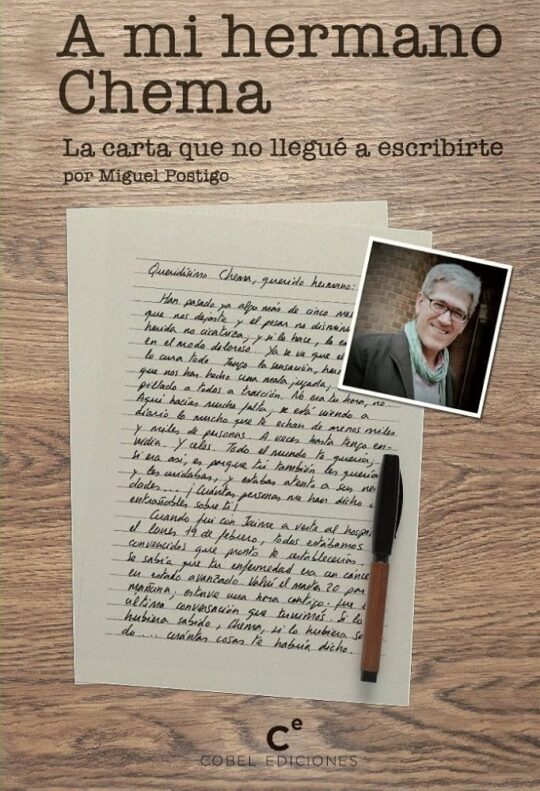 A mi hermano
Chema
La carta que no llegué a escribirte
por Miguel Postigo
Queridísimo Chema, querido hermano:
Han pasado ya algo más de cinco
que nos dejaste y el pesar no
herida no cicatriza, y si lo hace, lo
en el modo doloroso. Ya se ve que el
lo cura todo. Tengo la sensación,
que nos han hecho una mala jugada,
pillado a todos a traición. No era tu hora, no
Aquí hacías mucha falta, se está viendo a
diario lo mucho que te echan de menos miles
y miles de personas. A veces hasta tengo en-
vidia. Y celos. Todo el mundo te quería,
si era así, es porque tú también les querías
y les cuidabas, y estabas atento a sus
dades.... ¡Cuántas personas me han dicho
entrañables sobre ti!
Cuando fui con Jaime a verte al
el lunes 19 de febrero, todos estábamos
convencidos que pronto te restablecerías
Se sabía que tu enfermedad era un
en estado avanzado. Volví el martes 20 por
mañana, estuve una hora contigo. Fue
última conversación que tuvimos. Si lo
hubiera sabido, Chema, si lo hubiera
do.... cuántas cosas te habría dicho
Ce
COBEL EDICIONES